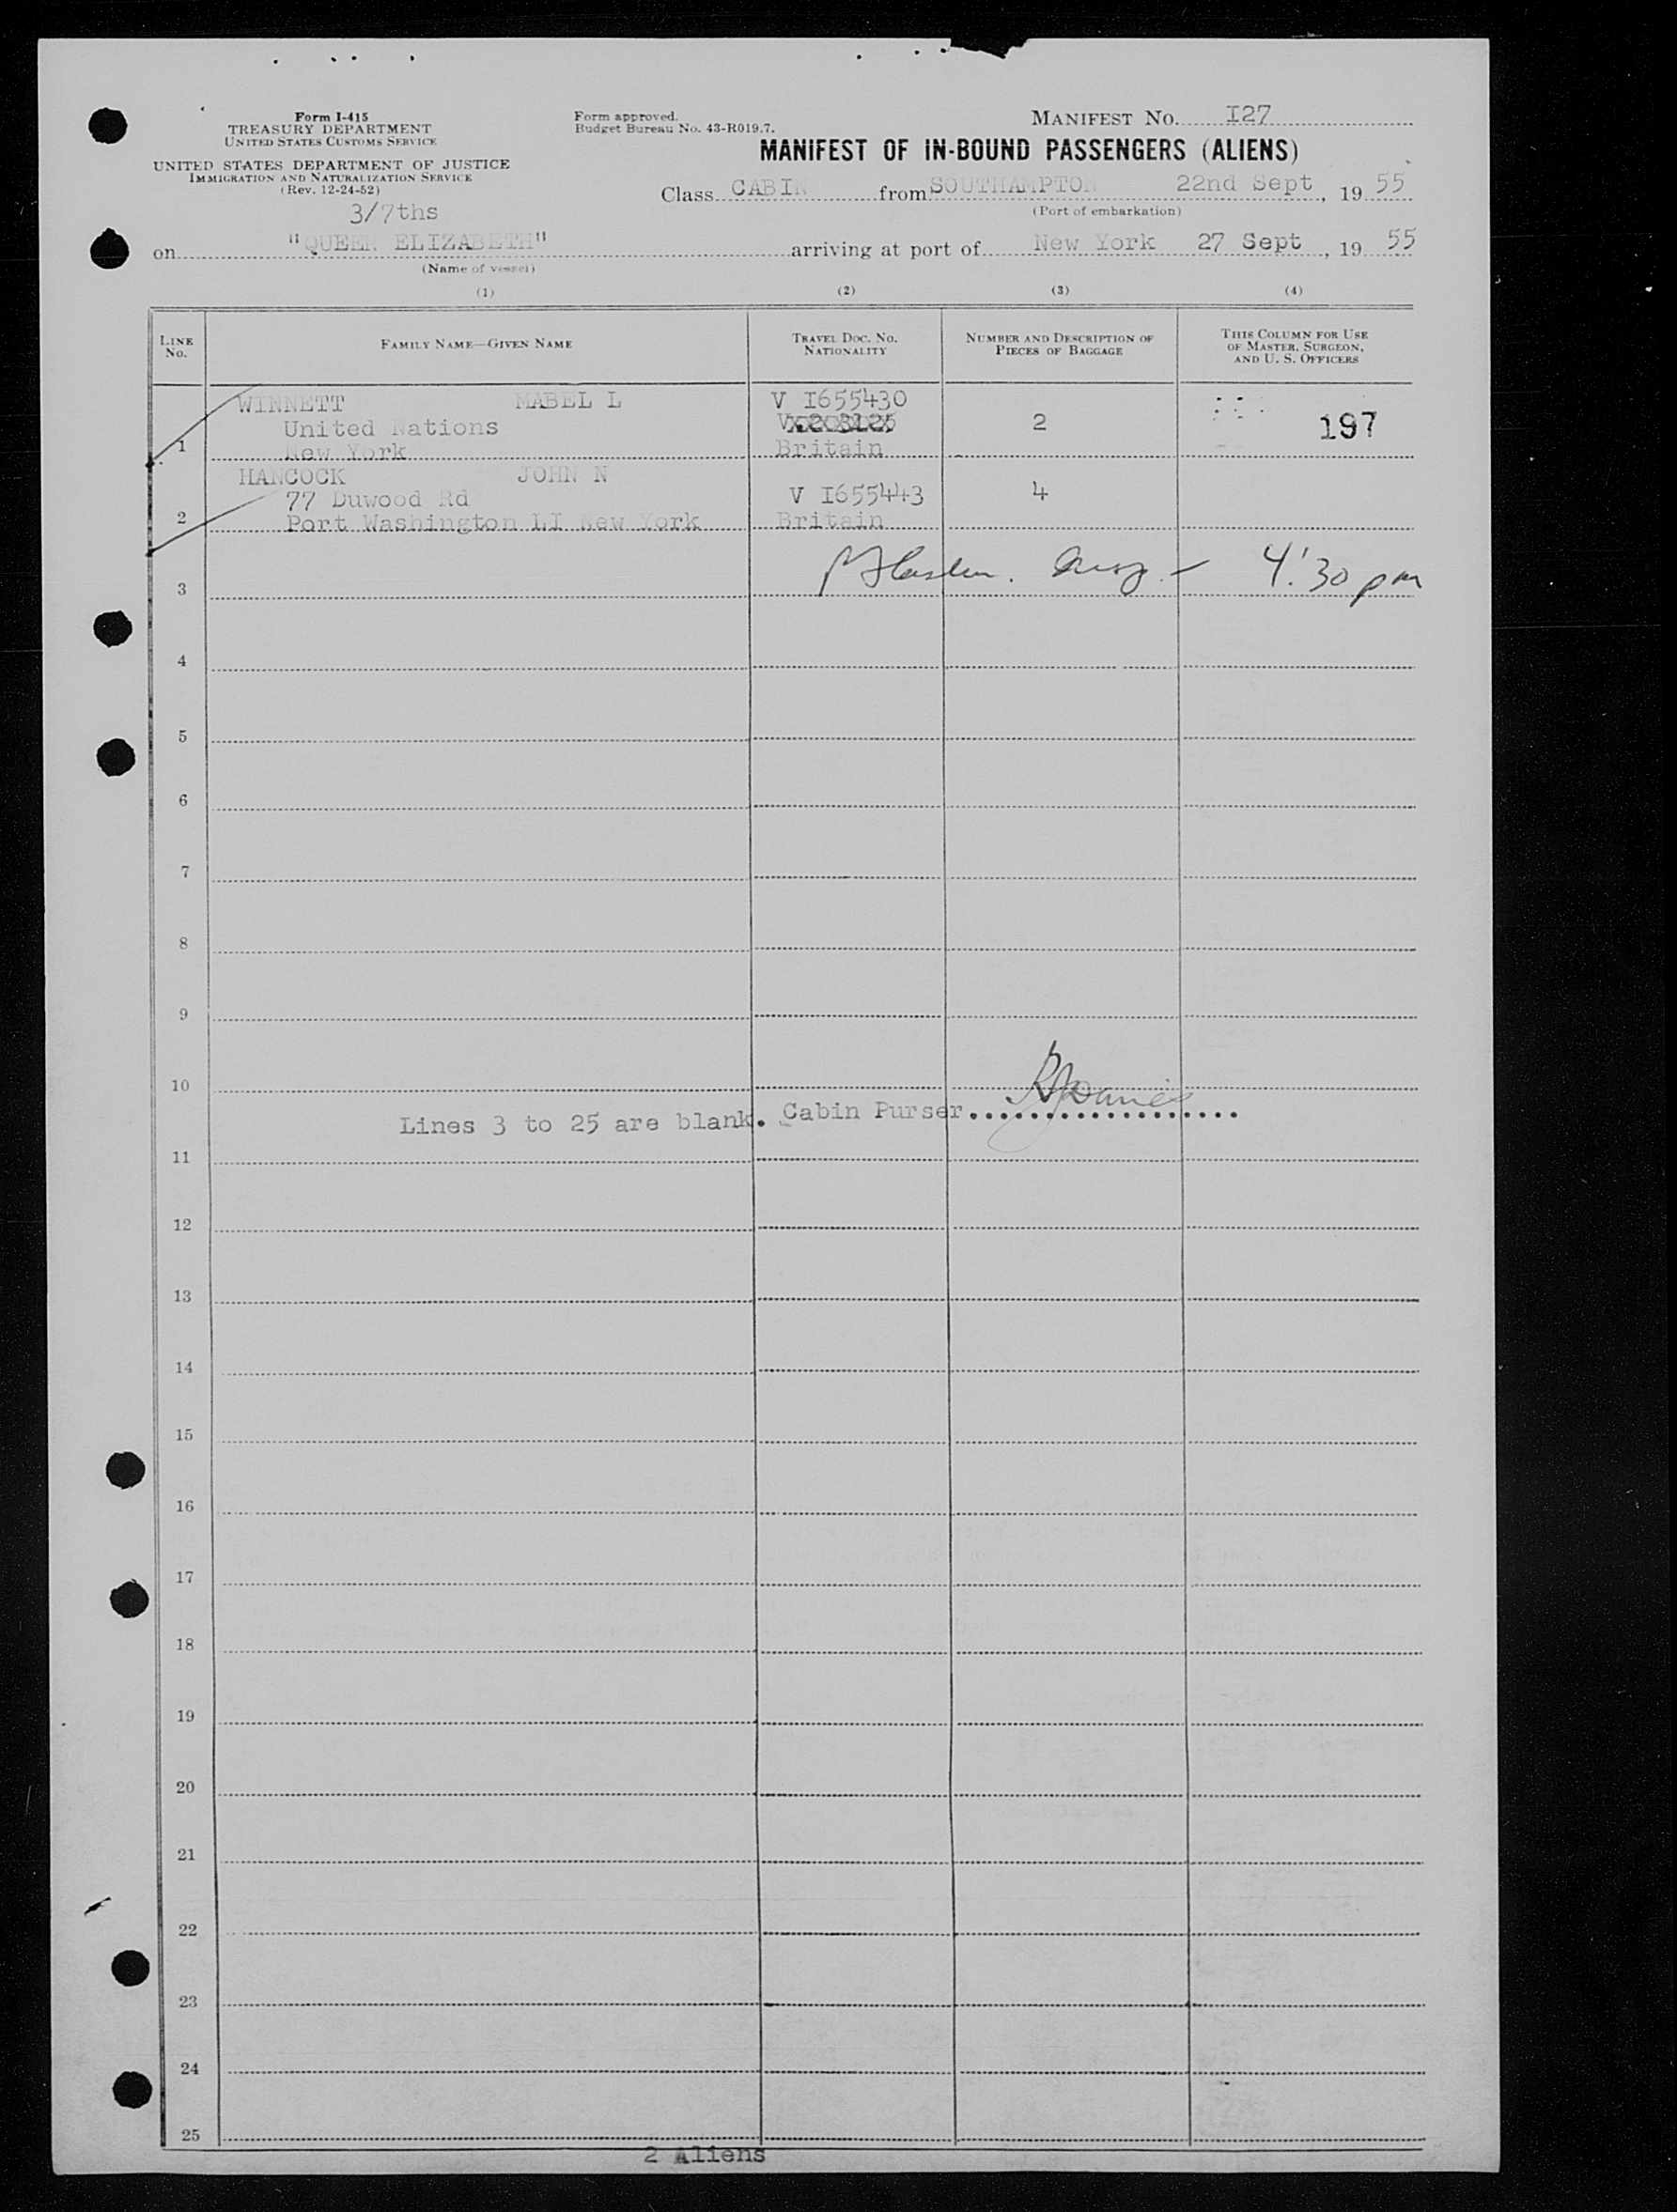 Form I-415
TREASURY DEPARTMENT
UNITED STATES CUSTOMS SERVICE
UNITED STATES DEPARTMENT OF JUSTICE
IMMIGRATION AND NATURALIZATION SERVICE
(Rev. 12-24-52)
3/7ths
Form approved.
Budget Bureau No. 43-R019.7.
MANIFEST No. I27
MANIFEST OF IN-BOUND PASSENGERS (ALIENS)
Class CABIN from SOUTHAMPTON 22nd Sept, 19 55
(Port of embarkation)
on "QUEEN ELIZABETH" arriving at port of New York 27 Sept, 19 55
(Name of vessel)
(1) (2) (3) (4)
LINE No. FAMILY NAME—GIVEN NAME TRAVEL DOC. NO. NATIONALITY NUMBER AND DESCRIPTION OF PIECES OF BAGGAGE THIS COLUMN FOR USE OF MASTER, SURGEON, AND U. S. OFFICERS
WINNETT MABEL L V I655430
United Nations 2 197
1 New York Britain
HANCOCK JOHN N
77 Duwood Rd V I655443 4
2 Port Washington LI New York Britain
4:30 pm
3
4
5
6
7
8
9
10
Lines 3 to 25 are blank. Cabin Purser
11
12
13
14
15
16
17
18
19
20
21
22
23
24
25
2 Aliens